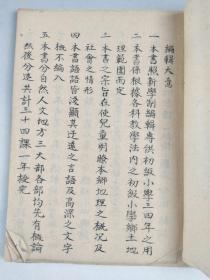 編輯大意
一本書照新學制編輯專供初級小學三四年之用
二本書係根據各科教學法內之初級小學鄉土地
理範圍而定
三本書之宗旨在使兒童明瞭本鄉地理之概况及
社會之情形
四本書語語皆淺顯其迂遠之言語及高深之文字
概不編入
五本書分自然人文地方三大部各部均先有概論
然後分述共計三十四課一年授完